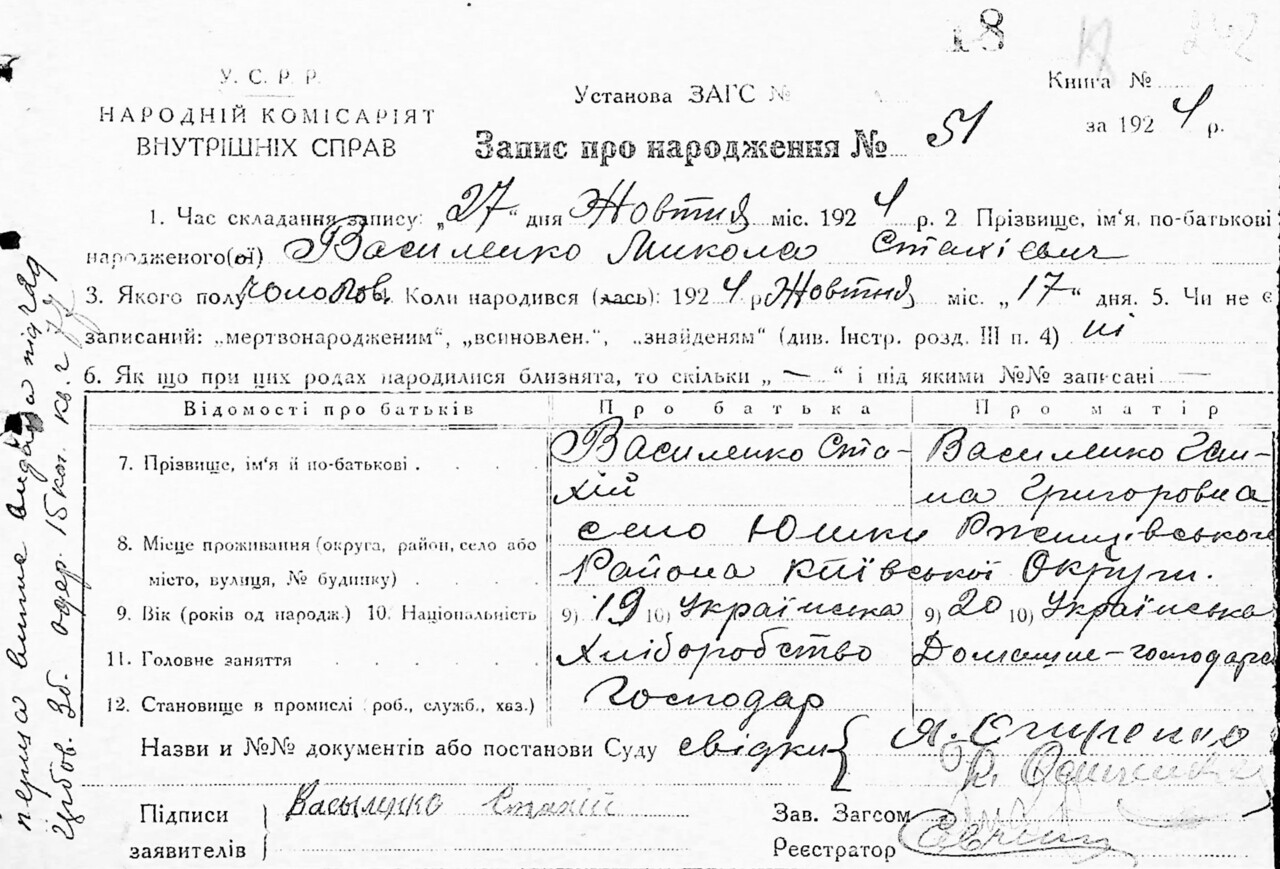 18
У. С. Р. Р.
НАРОДНІЙ КОМІСАРІЯТ
ВНУТРІШНІХ СПРАВ
Установа ЗАГС №
Книга №
за 1924 р.
Запис про народження № 51
1. Час складання запису: „27“ дня Жовтня міс. 1924 р. 2 Прізвище, ім'я, по-батькові
народженого(ої) Василенко Микола Стахієвич
3. Якого полу чологов. Коли народився (лась): 1924 р Жовтня міс. „17“ дня. 5. Чи не є
записаний: „мертвонародженим“, „всиновлен.“, „знайденям“ (див. Інстр. розд. III п. 4) ні
6. Як що при цих родах народилися близнята, то скільки „ — “ і під якими №№ записані —
Відомості про батьків Про батька Про матір
7. Прізвище, ім'я й по-батькові . Василенко Ста- Василенко Ган-
хій на Григоровна
8. Місце проживання (округа, район, село або село Юшки Ржищівського
місто, вулиця, № будинку) . Района Київської Округи.
9. Вік (років од народж.) 10. Національність 9) 19 10) Українська 9) 20 10) Українська
11. Головне заняття Хліборобство Домашнє-господарс
12. Становище в промислі (роб., служб., хаз.) Господар
Назви и №№ документів або постанови Суду свідки {
Підписи Васыленко Стахій
заявителів
Зав. Загсом
Реєстратор
15 коп. кв.